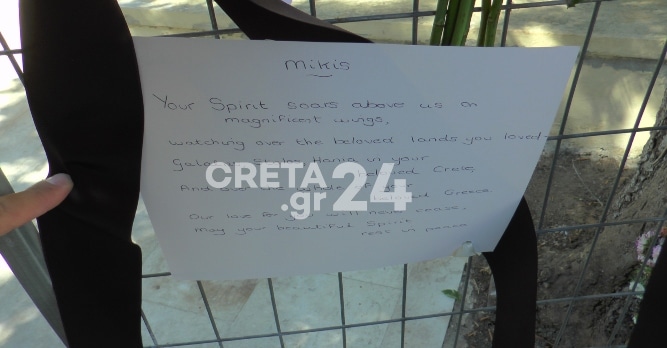 Mikis
Your Spirit soars above us on
magnificent wings,
watching over the beloved lands you loved
Hania in your
beloved Crete,
And over
Greece
Our love for you will never cease.
May your beautiful Spirit
rest in peace
CRETA
.gr 24